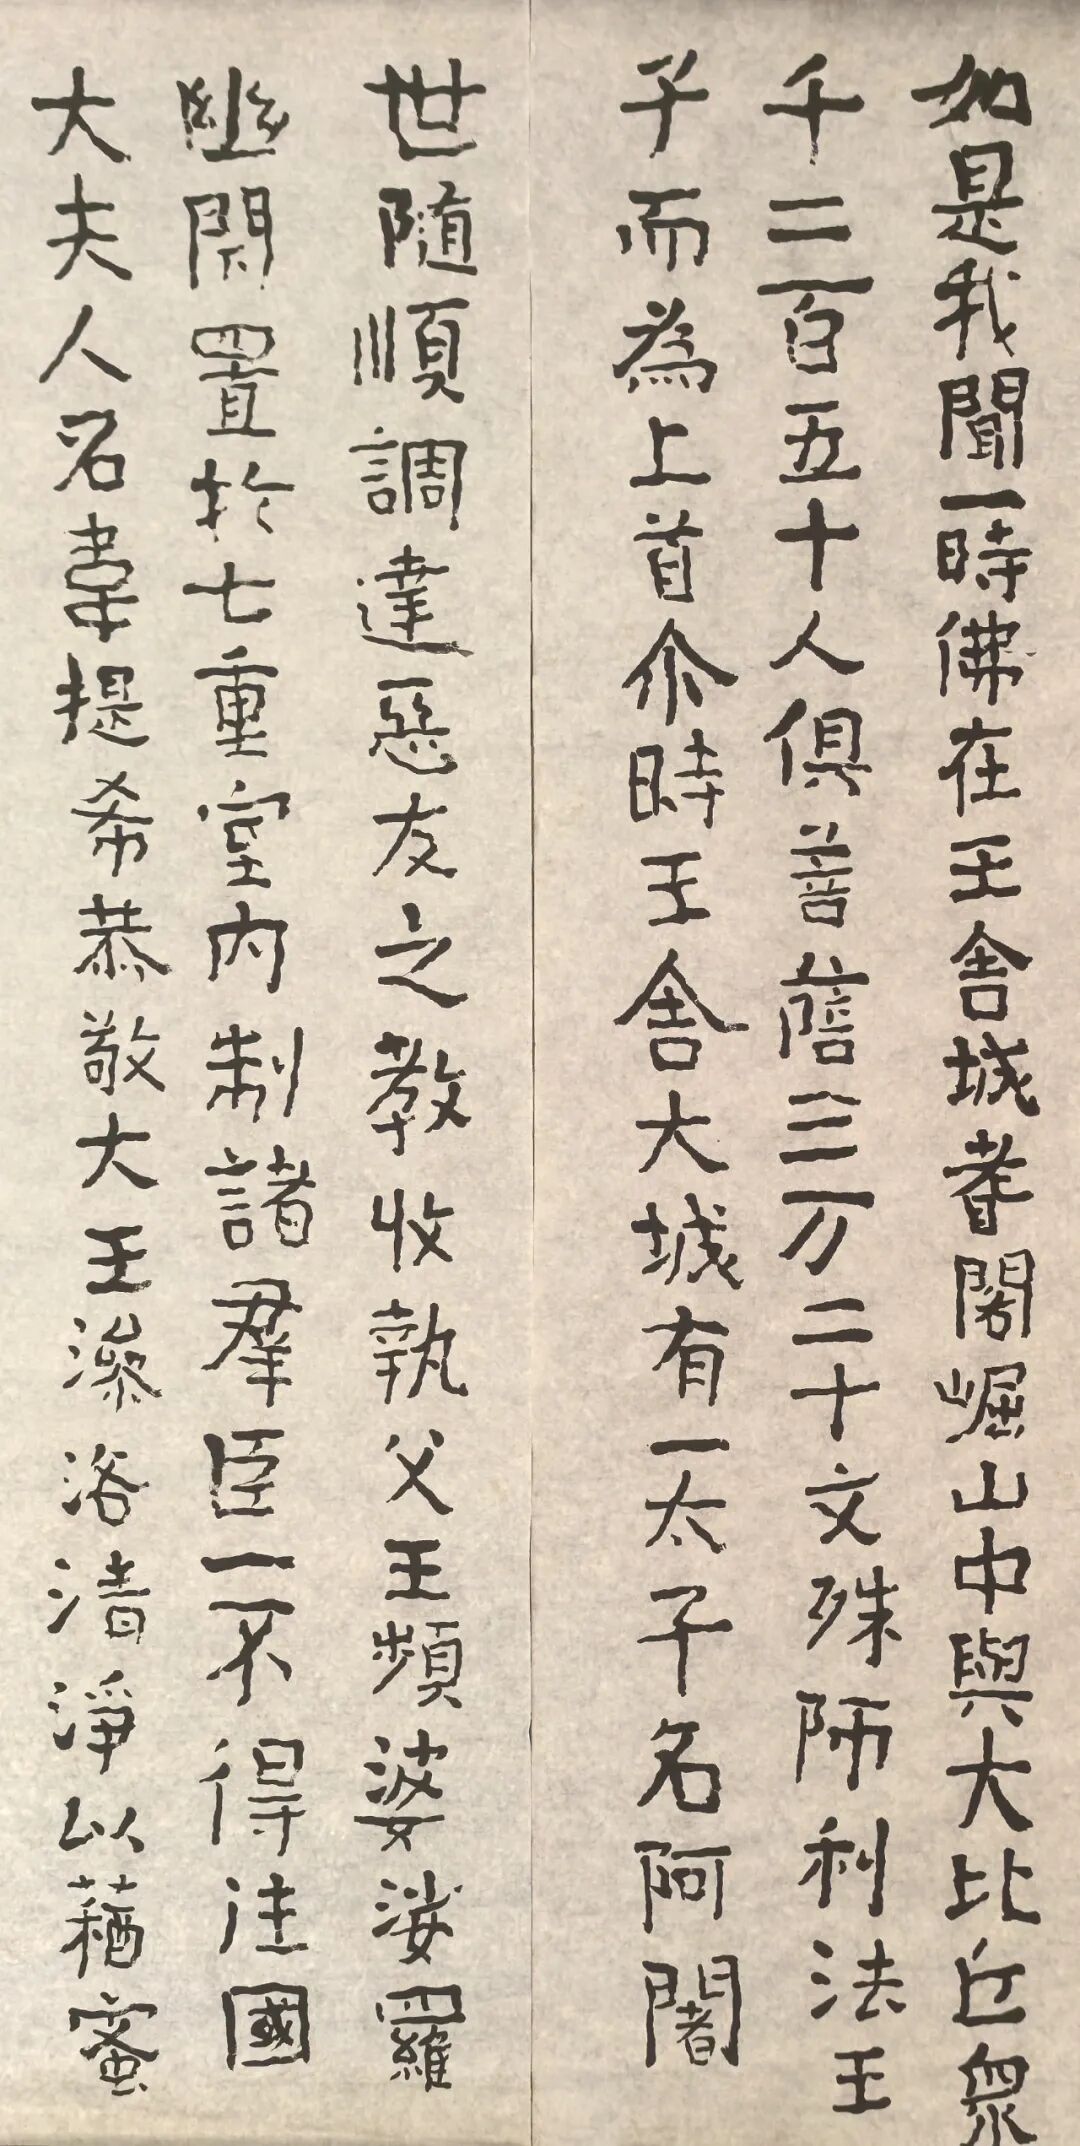 如是我聞一時佛在王舍城耆闍崛山中與大比丘眾
千二百五十人俱菩薩三万二十文殊師利法王
子而為上首尒時王舍大城有一太子名阿闍
世隨順調達惡友之教收執父王頻婆娑羅
幽閉置於七重室內制諸羣臣一不得往國
大夫人名韋提希恭敬大王澡浴清淨以蜜